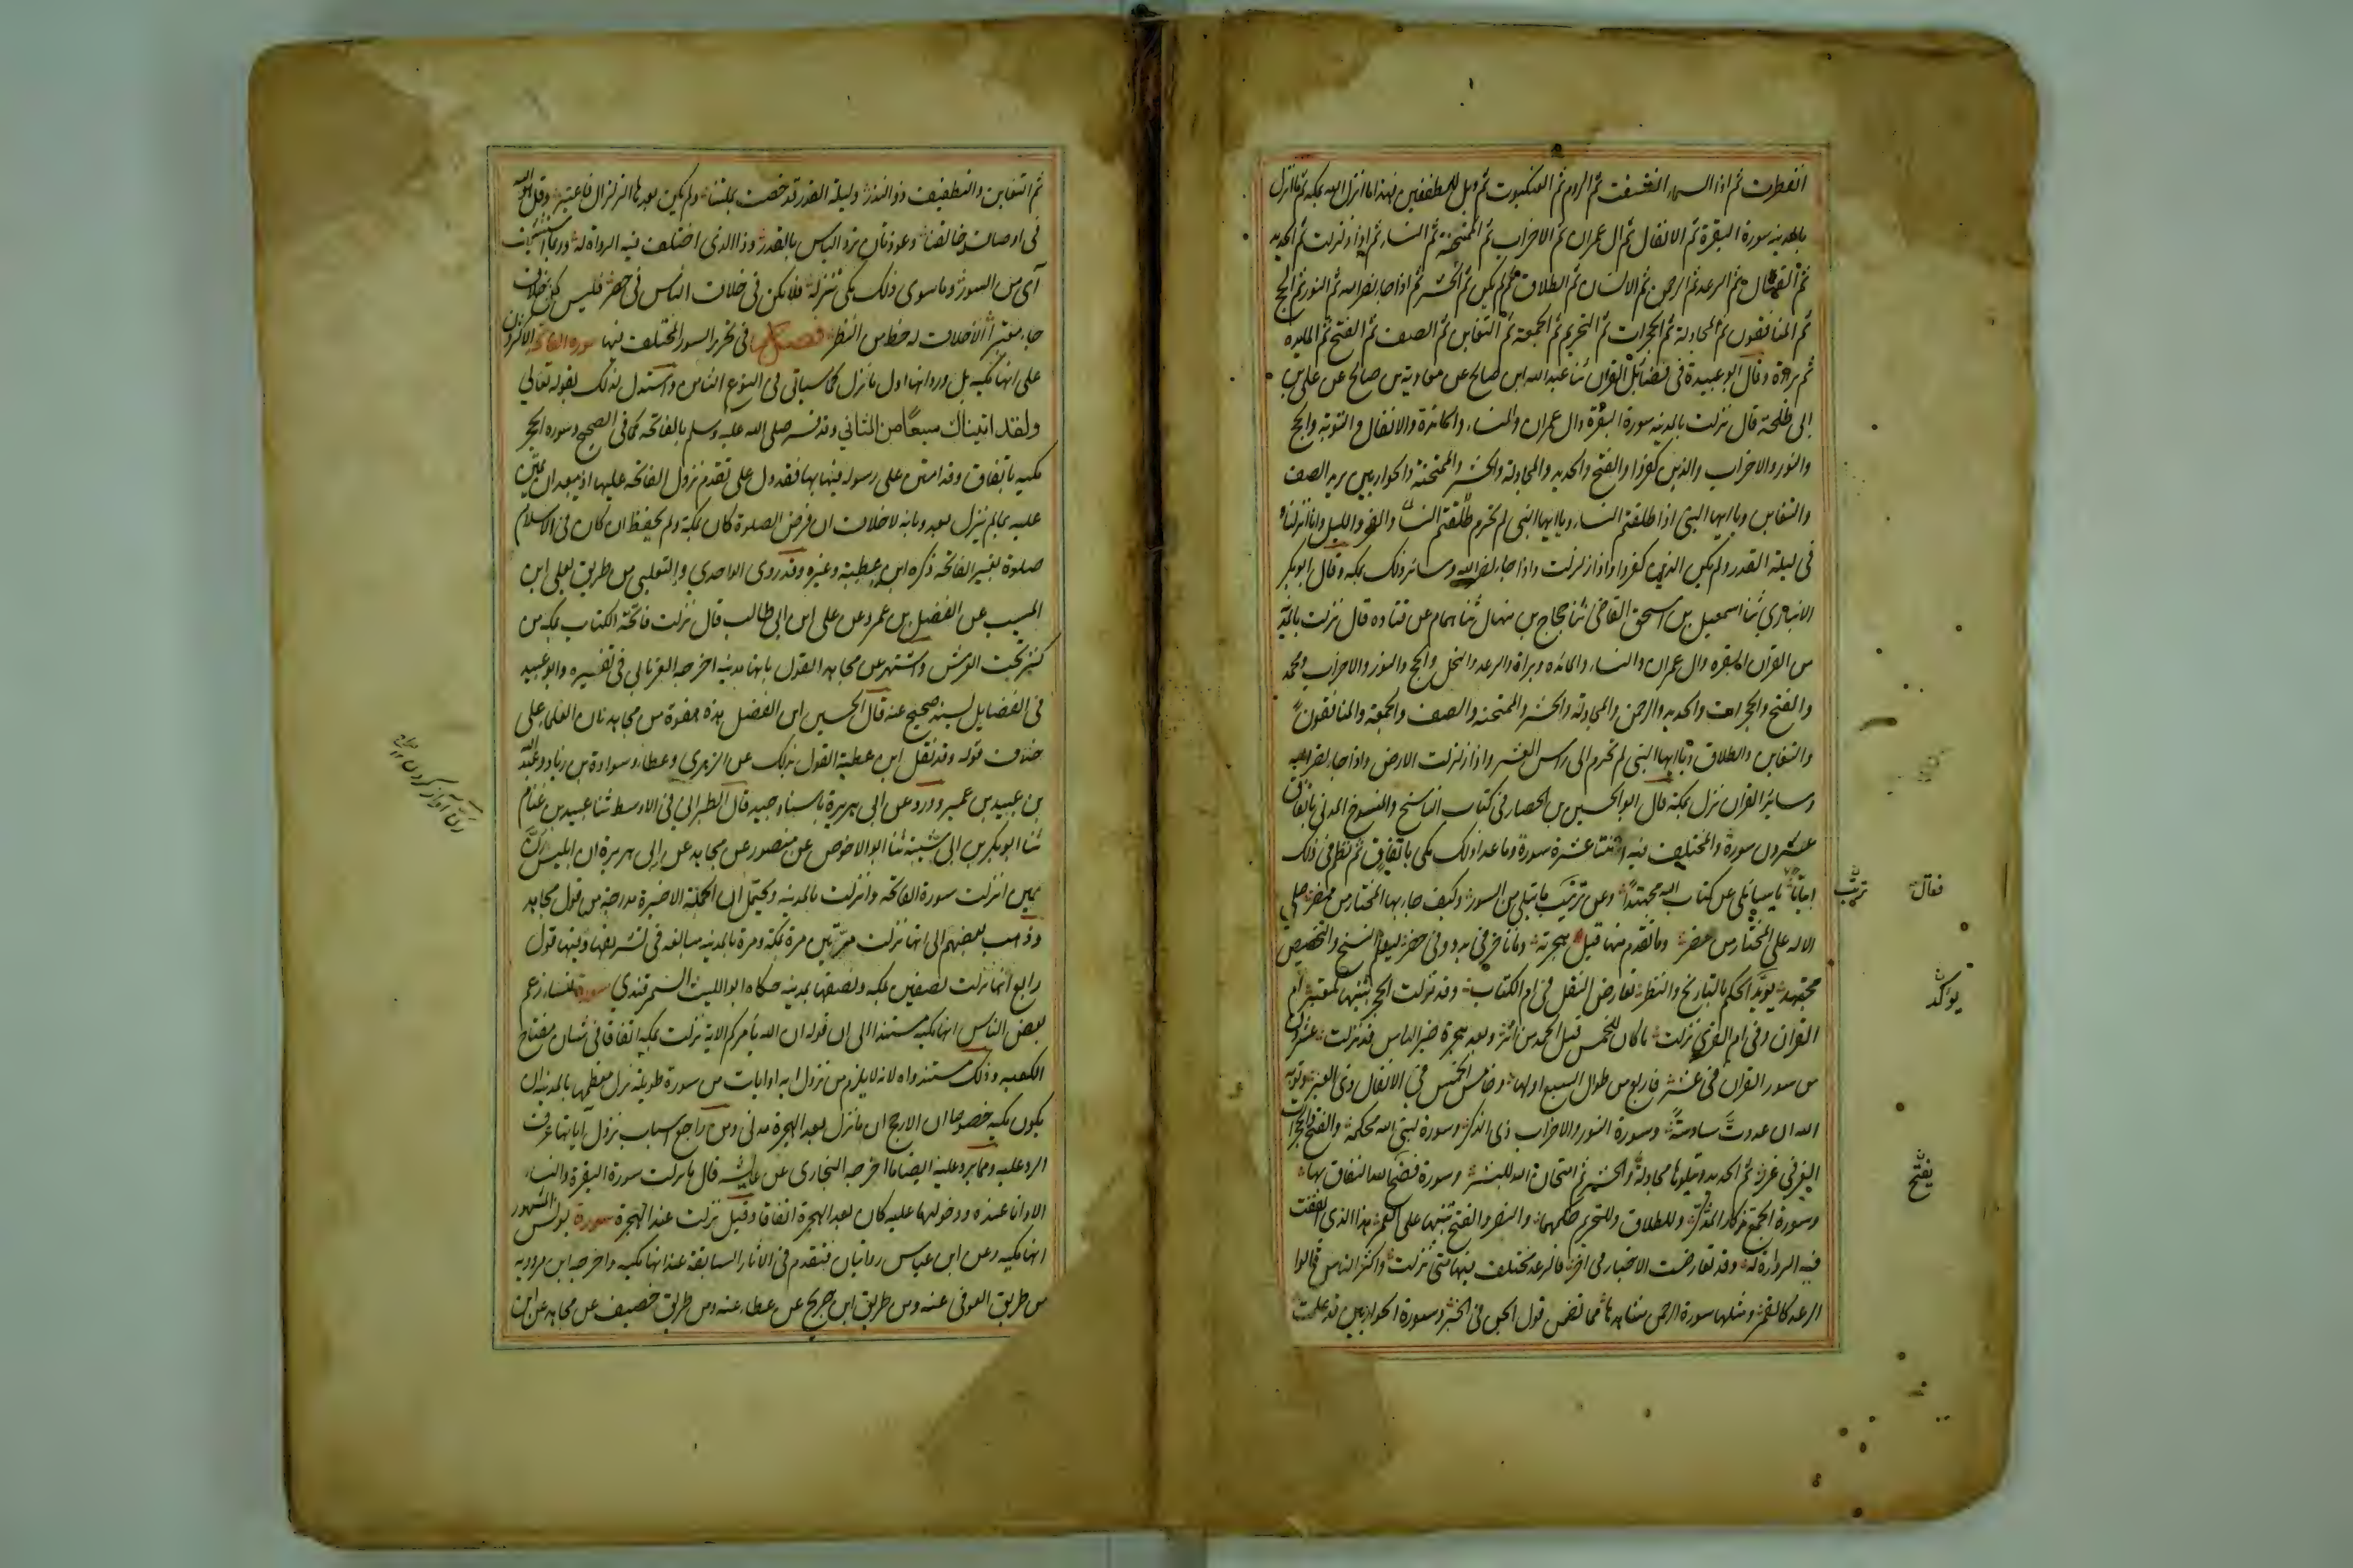 انفطرت ثم اذا السماء انشقت ثم الروم ثم العنكبوت ثم ويل للمطففين فهذا ما انزل الله بمكة ثم انزل
بالمدينه سورة البقرة ثم الانفال ثم ال عمران ثم الاحزاب ثم الممتحنة ثم النساء ثم اذا زلزلت ثم الحديد
ثم القتال ثم الرعد ثم الرحمن ثم الانسان ثم الطلاق ثم لم يكن ثم الحشر ثم اذا جاء نصر الله ثم النور ثم الحج
ثم المنافقون ثم المجادلة ثم الحجرات ثم التحريم ثم الجمعة ثم التغابن ثم الصف ثم الفتح ثم المايدة
ثم براءة وقال ابو عبيدة في فضائل القران ثنا عبد الله ابن صالح عن معاوية بن صالح عن علي بن
ابي طلحة قال نزلت بالمدينه سورة البقرة وال عمران والنساء والمائدة والانفال والتوبة والحج
والنور والاحزاب والذين كفروا والفتح والحديد والمجادلة والحشر والممتحنة والحواريين يريد الصف
والتغابن ويا ايها النبي اذا طلقتم النساء ويا ايها النبي لم تحرم والفجر والليل وانا انزلناه
في ليلة القدر ولم يكن الذين كفروا واذا زلزلت واذا جاء نصر الله وسائر ذلك بمكه وقال ابو بكر
الانباري ثنا اسمعيل بن اسحق القاضي ثنا حجاج بن منهال ثنا همام عن قتاده قال نزلت بالمدينة
من القران البقره وال عمران والنساء والمائده وبراة والرعد والنحل والحج والنور والاحزاب ومحمد
والفتح والحجرات والحديد والرحمن والمجادلة والحشر والممتحنه والصف والجمعة والمنافقون
والتغابن والطلاق ويا ايها النبي لم تحرم الى راس العشر واذا زلزلت الارض واذا جاء نصر الله
وسائر القران نزل بمكة قال ابو الحسين بن الحصار في كتاب الناسخ والمنسوخ المدني باتفاق
عشرون سورة والمختلف فيه اثنتا عشرة سورة وما عدا ذلك مكي باتفاق ثم نظم في ذلك
ابياتا يا سايلي عن كتاب الله مجتهدًا وعن ترتيب ما يتلى من السور وكيف جاء بها المختار من مضر صلى
الاله على المختار من مضر وما تقدم منها قبل هجرته وما تاخر في بدو وفي حضر ليعلم النسخ والتخصيص
مجتهد يويد الحكم بالتاريخ والنظر تعارض النقل في ام الكتاب وقد تولت الحجر تنبيها لمعتبر ام
القران وفي ام القرى نزلت ما كان للخمس قبل الحمد من اثر وبعد هجرة خير الناس قد نزلت عشرون
من سور القران في عشر فاربع من طوال السبع اولها وخامس الخمس في الانفال ذي العبر وتوبة
الله ان عدت سادسة وسورة النور والاحزاب ذي الذكر وسورة لنبي الله محكمة والفتح والحجرات
الغر في غرر ثم الحديد ويتلوها مجادلة والحشر ثم امتحان الله للبشر وسورة فضح الله النفاق بها
وسورة الجمع تذكار المدكر وللطلاق وللتحريم حكمهما والنصر والفتح تنبيها على العمر هذا الذي اتفقت
فيه الرواة له وقد تعارضت الاخبار في اخر فالرعد مختلف فيها متى نزلت واكثر الناس قالوا
الرعد كالقمر ومثلها سورة الرحمن شاهدها مما تضمن قول الجن في الخبر وسورة الحواريين قد علمت
فقال
ترتب
يؤكد
يفتح
ثم التغابن والتطفيف ذو النذر وليلة القدر قد خصت بملتنا ولم يكن بعدها الزلزال فاعتبر وقل هو الله
في اوصاف خالقنا وعوذتان ترد الباس بالقدر وذا الذي اختلف فيه الرواة له وربما استثنيت
آي من السور وما سوى ذلك مكي تنزله فلا تكن في خلاف الناس في حصر فليس كل خلاف
جاء معتبرا الا خلاف له حظ من النظر فصل في تحرير السور المختلف فيها سورة الفاتحة الاكثرون
على انها مكيه بل ورد انها اول ما نزل كما سياتي في النوع الثامن واستدل لذلك بقوله تعالى
ولقد اتيناك سبعًا من المثاني وقد فسرها صلى الله عليه وسلم بالفاتحه كما في الصحيح وسورة الحجر
مكيه باتفاق وقد امتن على رسوله فيها بها فقد دل على تقدم نزول الفاتحه عليها اذ يبعد ان يمتن
عليه بما لم ينزل بعد وبانه لا خلاف ان فرض الصلوة كان بمكة ولم يحفظ ان كان في الاسلام
صلوة بغير الفاتحه ذكره ابن عطية وغيره وقد روى الواحدي والثعلبي من طريق لعلي ابن
المسيب عن الفضيل بن عمرو عن علي ابن ابي طالب قال نزلت فاتحة الكتاب بمكه من
كنز تحت العرش واشتهر عن مجاهد القول بانها مدنيه اخرجه الفريابي في تفسيره وابو عبيد
في الفضايل بسند صحيح عنه قال الحسين ابن الفضل هذه هفوة من مجاهد لان العلماء على
خلاف قوله وقد نقل ابن عطية القول بذلك عن الزهري وعطاء وسوادة بن زياد وعبد الله
بن عبيد بن عمير وورد عن ابي هريرة باسناد جيد قال الطبراني في الاوسط ثنا عبيد بن غنام
ثنا ابو بكر بن ابي شيبة ثنا ابو الاحوص عن منصور عن مجاهد عن ابي هريرة ان ابليس رن
حين انزلت سورة الفاتحه وانزلت بالمدينه ويحتمل ان الجملة الاخيرة مدرجة من قول مجاهد
وذهب بعضهم الى انها نزلت مرتين مرة بمكة ومرة بالمدينه مبالغه في تشريفها وفيها قول
رابع انها نزلت نصفين بمكه ونصفها بمدينه حكاه ابو الليث السمرقندي سورة النساء زعم
بعض الناس انها مكيه مستندا الى ان قوله ان الله يأمركم الاية نزلت بمكه اتفاقا في شان مفتاح
الكعبه وذلك مستند واه لانه لا يلزم من نزول ايه او ايات من سورة طويلة نزل معظمها بالمدينه ان
يكون مكيه خصوصا ان الارجح ان ما نزل بعد الهجرة مدني ومن راجع اسباب نزول آياتها عرف
الرد عليه ومما يرد عليه ايضا ما اخرجه البخاري عن عايشه قال ما نزلت سورة البقرة والنساء
الا وانا عنده ودخولها عليه كان بعد الهجرة اتفاقا وقيل نزلت عند الهجرة سورة يونس المشهور
انها مكيه وعن ابن عباس روايتان فتقدم في الاثار السابقة عند انها مكيه واخرجه ابن مردويه
من طريق العوفي عنه ومن طريق ابن جريج عن عطاء عنه ومن طريق خصيف عن مجاهد عن ابن
رن آواز كردن